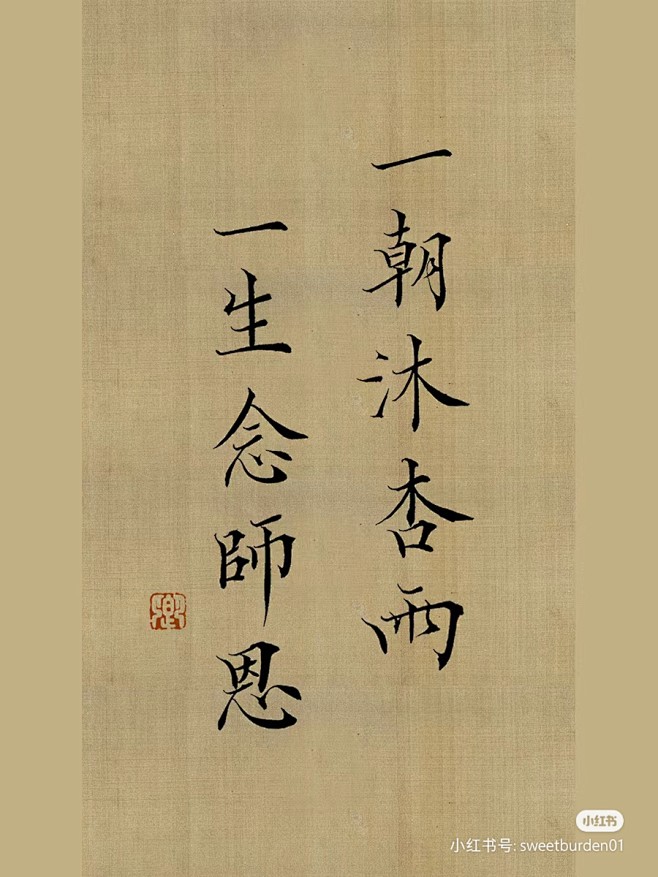 一朝沐杏雨
一生念師恩
小红书
小红书号: sweetburden01